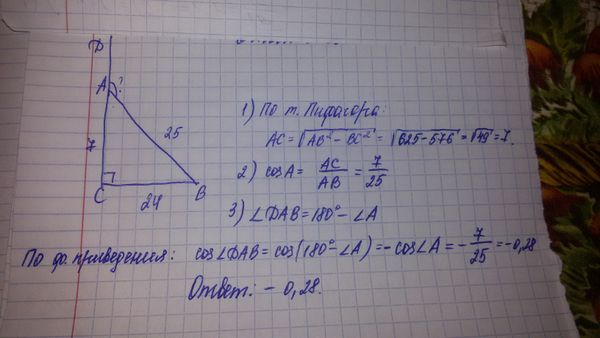 D
A ?
25
7
C
B
24
1) По т. Пифагора:
AC = √AB² - BC² = √625 - 576 = √49 = 7.
2) cosA = AC/AB = 7/25
3) ∠DAB = 180° - ∠A
По ф. приведения: cos∠DAB = cos(180° - ∠A) = - cos∠A = - 7/25 = -0,28
Ответ: - 0,28.